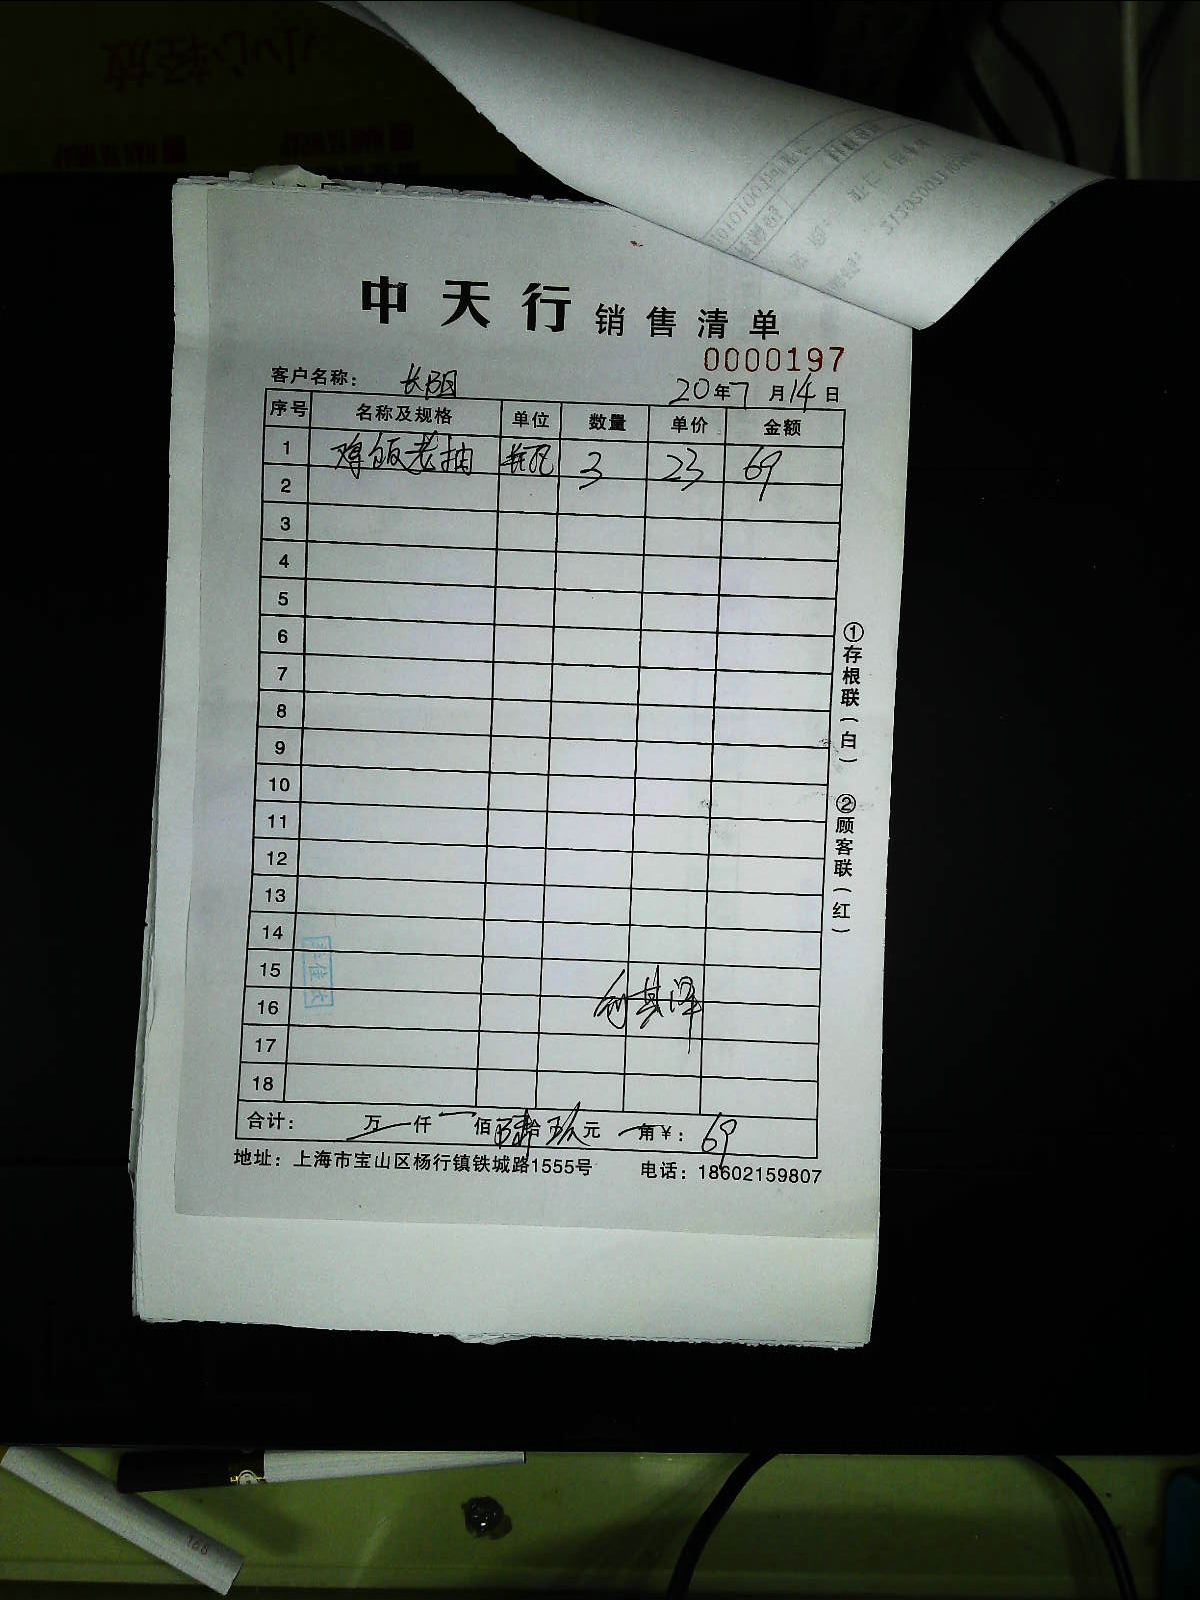 小心轻放
中天行 销售清单
0000197
客户名称： 长阳 20年7月14日
序号 名称及规格 单位 数量 单价 金额
1 老抽 瓶 3 23 69
2
3
4
5
6
7
8
9
10
11
12
13
14
15
16
17
18
合计： 万 仟 佰 陆拾 玖元 角¥： 69
地址：上海市宝山区杨行镇铁城路1555号 电话：18602159807
①存根联（白） ②顾客联（红）